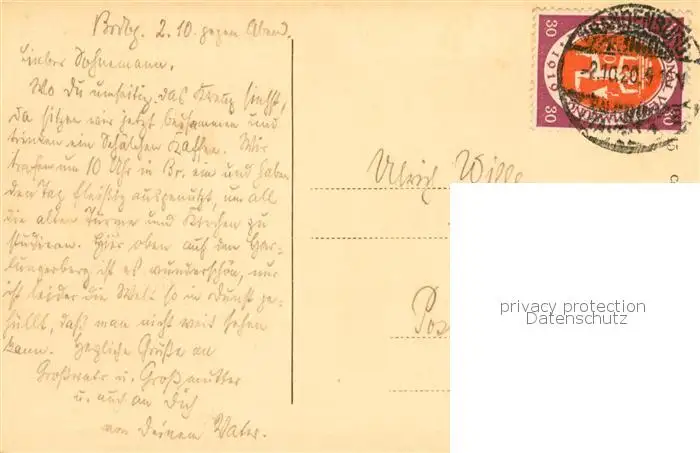 Brdbg. 2.10. gegen Abend.
Lieber Sohnemann.
Wo Du umseitig das Kreuz siehst,
da sitzen wir jetzt beisammen und
trinken ein Schälchen Kaffee. Wir
trafen um 10 Uhr in Br. ein und haben
den Tag fleißig ausgenutzt, um all
die alten Türme und Kirchen zu
studieren. Hier oben auf dem Har-
lungerberg ist es wunderschön, nur
ist leider die Welt so in Dunst ge-
hüllt, daß man nicht weit sehen
kann. Herzliche Grüße an
Großvater u. Großmutter
u. auch an Dich
von Deinem Vater.
Ulrich Wille
Pos
30 30
1919
30
-2.10.20.
privacy protection
Datenschutz